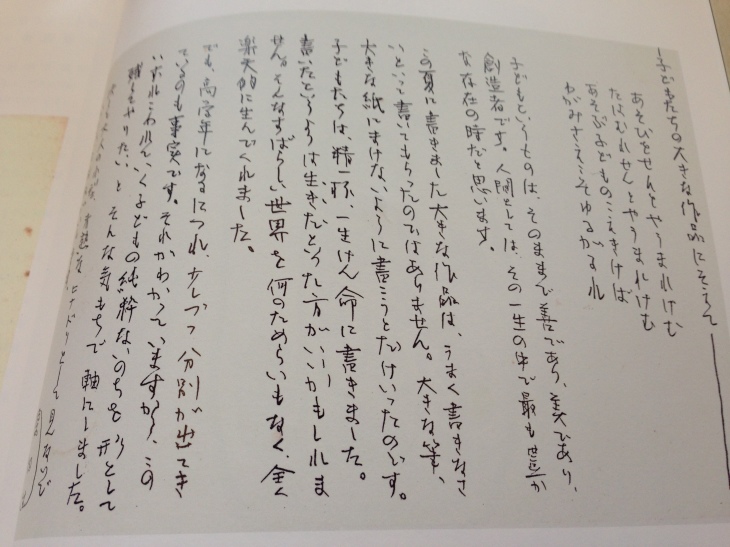 子どもたちの大きな作品にそえて
あそびをせんとやうまれけむ
たはむれせんとやうまれけむ
あそぶ子どものこゑきけば
わがみさえこそゆるがるれ
子どもというものは、そのままで善であり、美であり、
創造者です。人間としては、その一生の中で最も豊か
な存在の時だと思います。
この夏に書きました大きな作品は、うまく書きなさ
いといって書いてもらったのではありません。大きな筆、
大きな紙にまけないように書こうとだけいったのです。
子どもたちは、精一杯、一生けん命に書きました。
書いたというよりは生きたといった方がいいかもしれま
せん。そんなすばらしい世界を何のためらいもなく、全く
楽天的に生んでくれました。
でも、高学年になるにつれ、少しづつ分別が出てき
ているのも事実です。それがわかっていますから、この
いずれこわれていく子どもの純粋ないのちを
としてやりたい、とそんな気もちで軸にしました。
見ないで